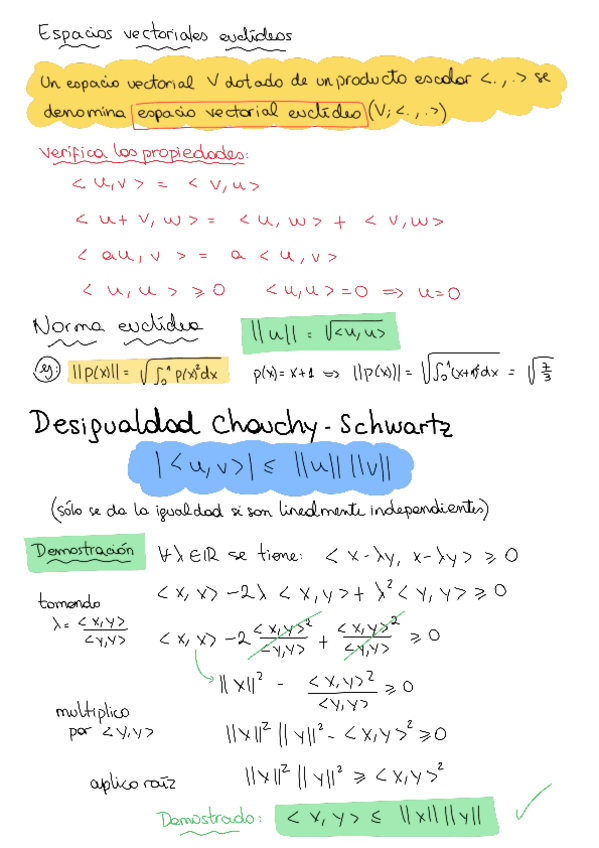 Espacios vectoriales euclídeos
Un espacio vectorial V dotado de un producto escalar <.,.> se
denomina espacio vectorial euclídeo (V; <.,.>)
Verifica las propiedades:
<u,v> = <v,u>
<u+v,w> = <u,w> + <v,w>
<au,v> = a<u,v>
<u,u> ≥ 0 <u,u>=0 ⇒ u=0
Norma euclídea ||u|| = √<u,u>
eg: ||p(x)|| = √∫₀¹ p(x)²dx p(x)=x+1 ⇒ ||p(x)|| = √∫₀¹(x+1)²dx = √7/3
Desigualdad Chauchy-Schwartz
|<u,v>| ≤ ||u|| ||v||
(sólo se da la igualdad si son linealmente independientes)
Demostración ∀λ∈ℝ se tiene: <x-λy, x-λy> ≥ 0
<x,x> -2λ <x,y> + λ²<y,y> ≥ 0
tomando
λ = <x,y>/<y,y> <x,x> -2 <x,y>²/<y,y> + <x,y>²/<y,y> ≥ 0
||x||² - <x,y>²/<y,y> ≥ 0
multiplico
por <y,y> ||x||² ||y||² - <x,y>² ≥ 0
aplico raíz ||x||² ||y||² ≥ <x,y>²
Demostrado: <x,y> ≤ ||x|| ||y|| ✓